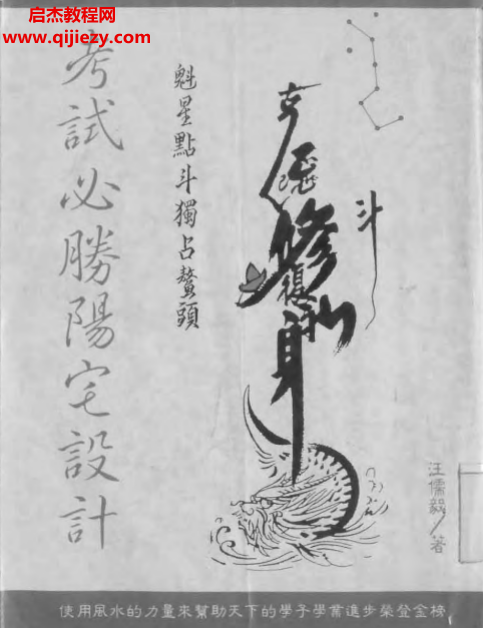 启杰教程网
www.qijiezy.com
考試必勝陽宅設計
魁星點斗獨占鰲頭
斗
汪儒毅/著
使用風水的力量來幫助天下的學子學業進步榮登金榜